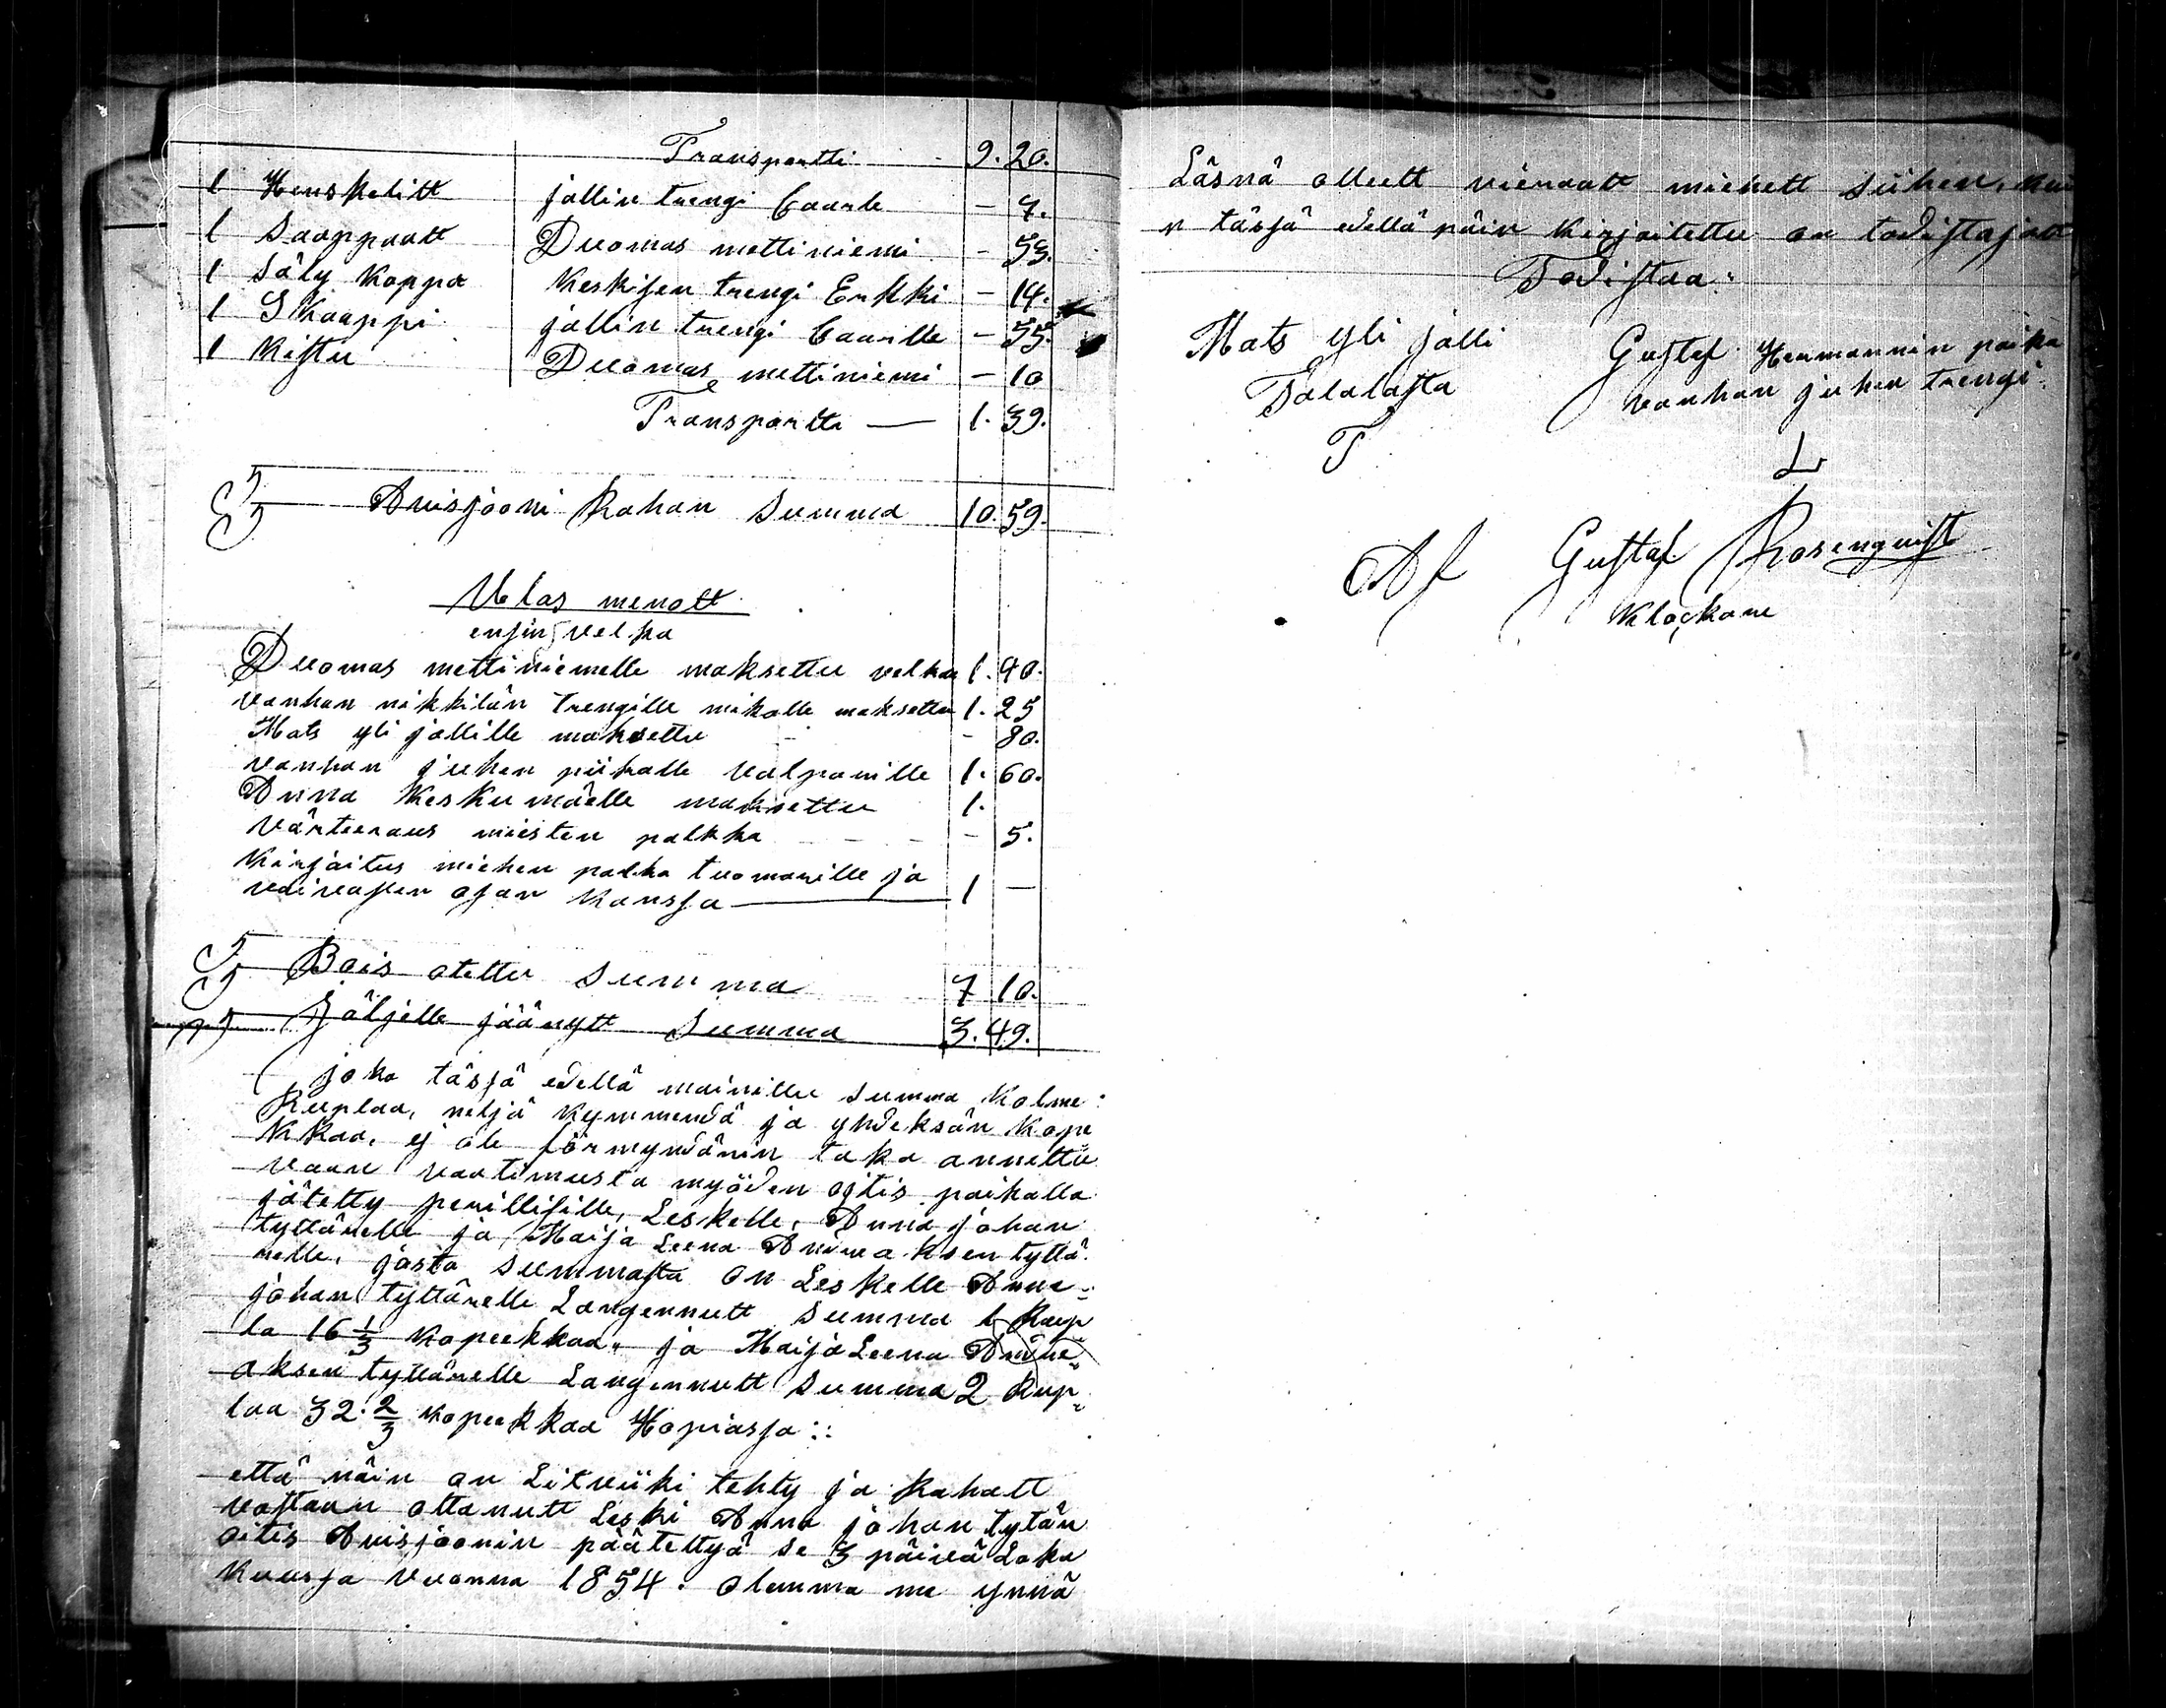 Transportti - 9. 20.
1 Henskelitt jallin trengi Caarle - 7.
1 Saappaatt Duomas mettiniemi - 53.
1 Säly koppa Keskisen trengi Erkki - 14.
1 Skaappi jallin trengi Caarlle - 55.
1 Kistu Duomas mettiniemi - 10
Transportti — 1. 39.
Auisjooni Rahan Summa 10. 59.
Ulos menott
ensin velka
Duomas mettiniemelle maksettu velkaa 1. 40.
vanhan nikkilän trengille mikalle maksettu 1. 25
Mats yli jallille maksettu - 80.
vanhan juhen piikalle valpurille 1. 60.
Anna Keskumäelle maksettu 1.
värteeraus miesten palkka - - - 5.
Kirjoitus miehen palka tuomarille ja
vaivasten osan kanssa — 1 —
Bois otettu summa 7 10.
Jäljelle jäänytt Summa 3. 49.
joka tässä edellä mainittu summa Kolme
Ruplaa, neljä kymmendä ja yhdeksän Kope
kkaa, ej ole förmyndärin taka annettu
vaan vaatimusta myöden ojtis paikalla
jätetty perillisille, Leskelle, Anna johan
tyttärelle ja Maija Leena Andreaksen tyttä
relle, josta summasta on Leskelle Anna
johan tyttärelle Langennutt summa 1 Rup
la 16 1/3 kopeekkaa, ja Maija Leena Andre
aksen tyttärelle Langennutt summa 2 Rup
laa 32. 2/3 kopeekkaa Hopiassa ::
että näin on Litviiki tehty ja Rahatt
vastaan ottanutt Leski Anna johan tytär
oitis Auisjoonin päätettyä se 3 päivä Loka
kuussa vuonna 1854. olemma me ynnä
Läsnä olleett vieraatt miehett siihen, kui
n tässä edellä päin kirjoitettu on todistajatt
Todistaa:
Mats Yli jalli
Talalasta
T
Gustaf Hermannin poika
vanhan juhen trengi
L
Af Gustaf Rosenqvist
Klockare